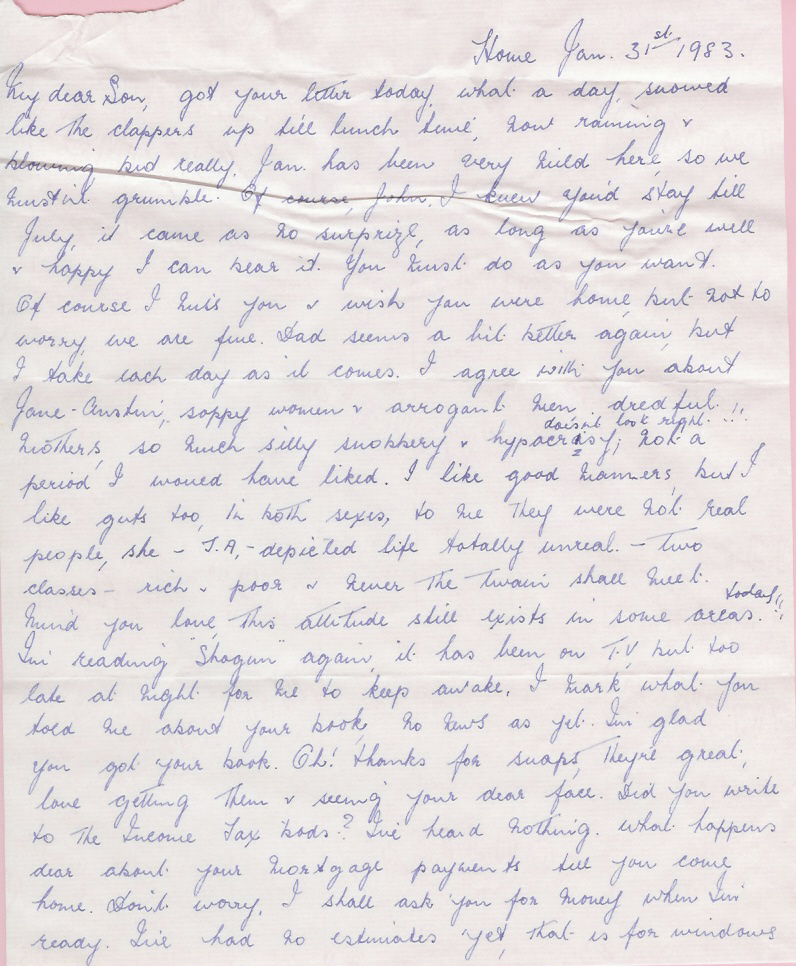 Home Jan. 31st 1983.
My dear Son, got your letter today, what a day, snowed
like the clappers up till lunch time, now raining &
blowing kid really. Jan. has been very mild here, so we
mustn't grumble. Of course, John, I knew you'd stay till
July, it came as no surprize, as long as you're well
& happy I can bear it. You must do as you want.
Of course I miss you & wish you were home, but not to
worry, we are fine. Dad seems a bit better again, but
I take each day as it comes. I agree with you about
Jane-Austin, soppy women & arrogant men, dredful
doesn't look right. !!!
mothers, so much silly snobbery & hypocrisy; not a
period I woued have liked. I like good manners, but I
like guts too, in both sexes, to me they were not real
people, she - J.A,- depicted life totally unreal. - two
classes - rich & poor & never the twain shall meet.
today!!
Mind you love, this attitude still exists in some areas.
I'm reading "Shogun" again, it has been on T.V but too
late at night for me to keep awake. I mark what you
told me about your book, no news as yet. I'm glad
you got your book. Oh! thanks for snaps, they're great,
love getting them & seeing your dear face. Did you write
to the Income Tax bods? I've heard nothing. what happens
dear about your mortgage payments till you come
home. Don't worry, I shall ask you for money when I'm
ready. I've had no estimates yet, that is for windows